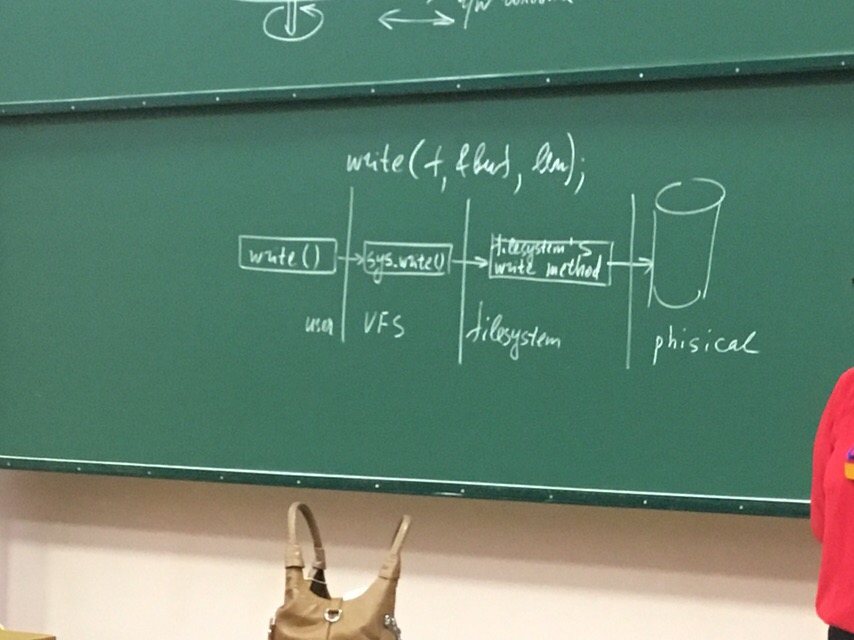 r/w
write(f, &buf, len);
write()
sys.write()
filesystem's
write method
user
VFS
filesystem
phisical